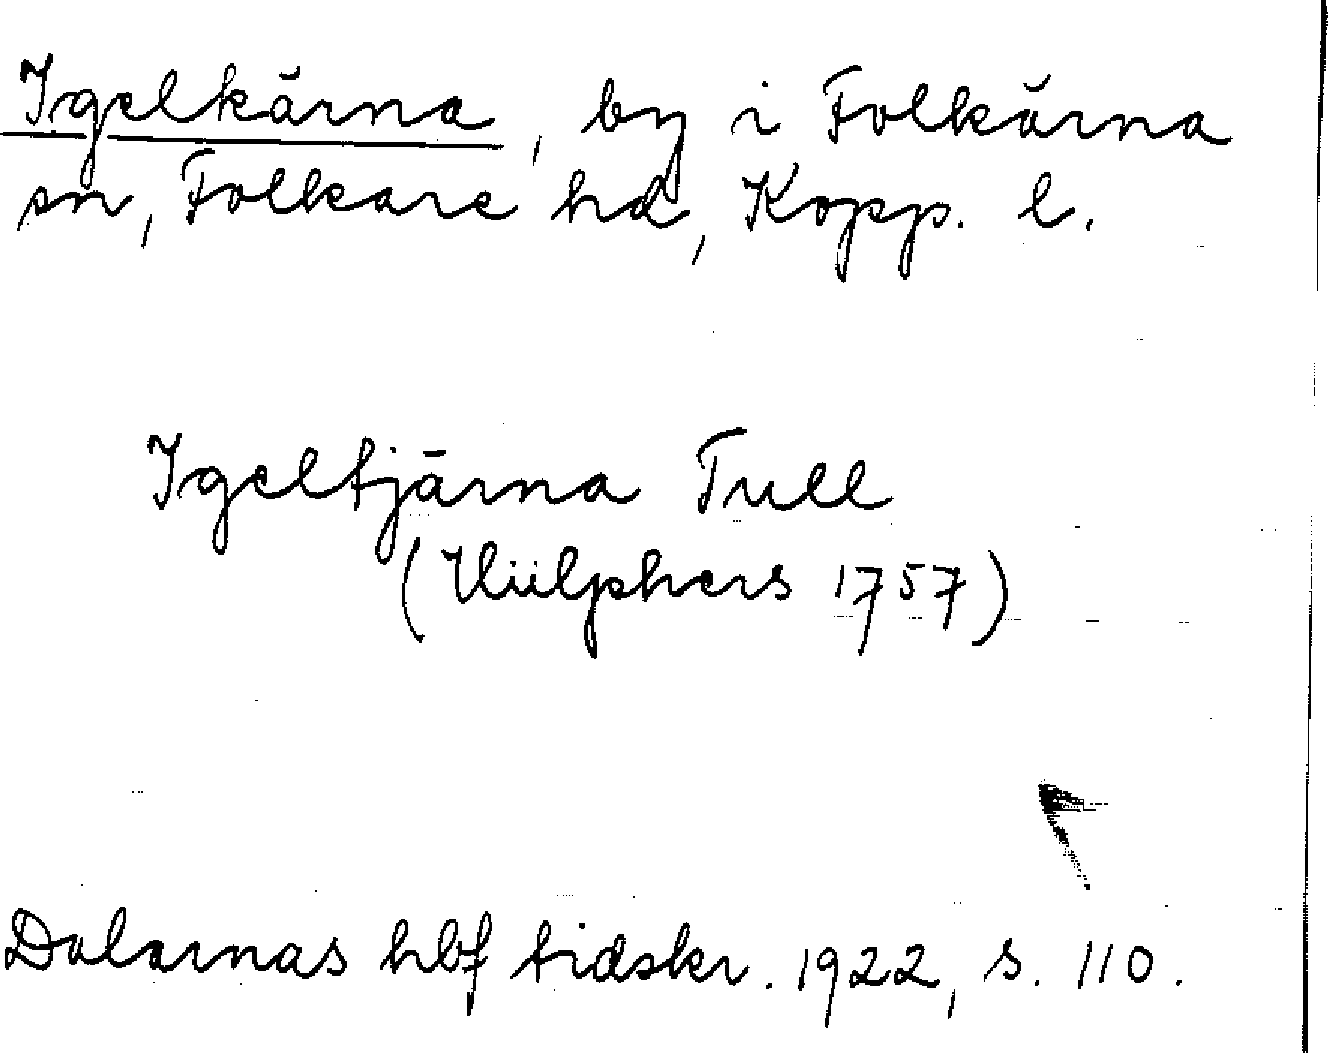 Igelkärna, by i Folkärna
sn, Folkare hd, Kopp. l.
Igeltjärna Tull
(Hülphers 1757)
Dalarnas hbf tidskr. 1922, s. 110.